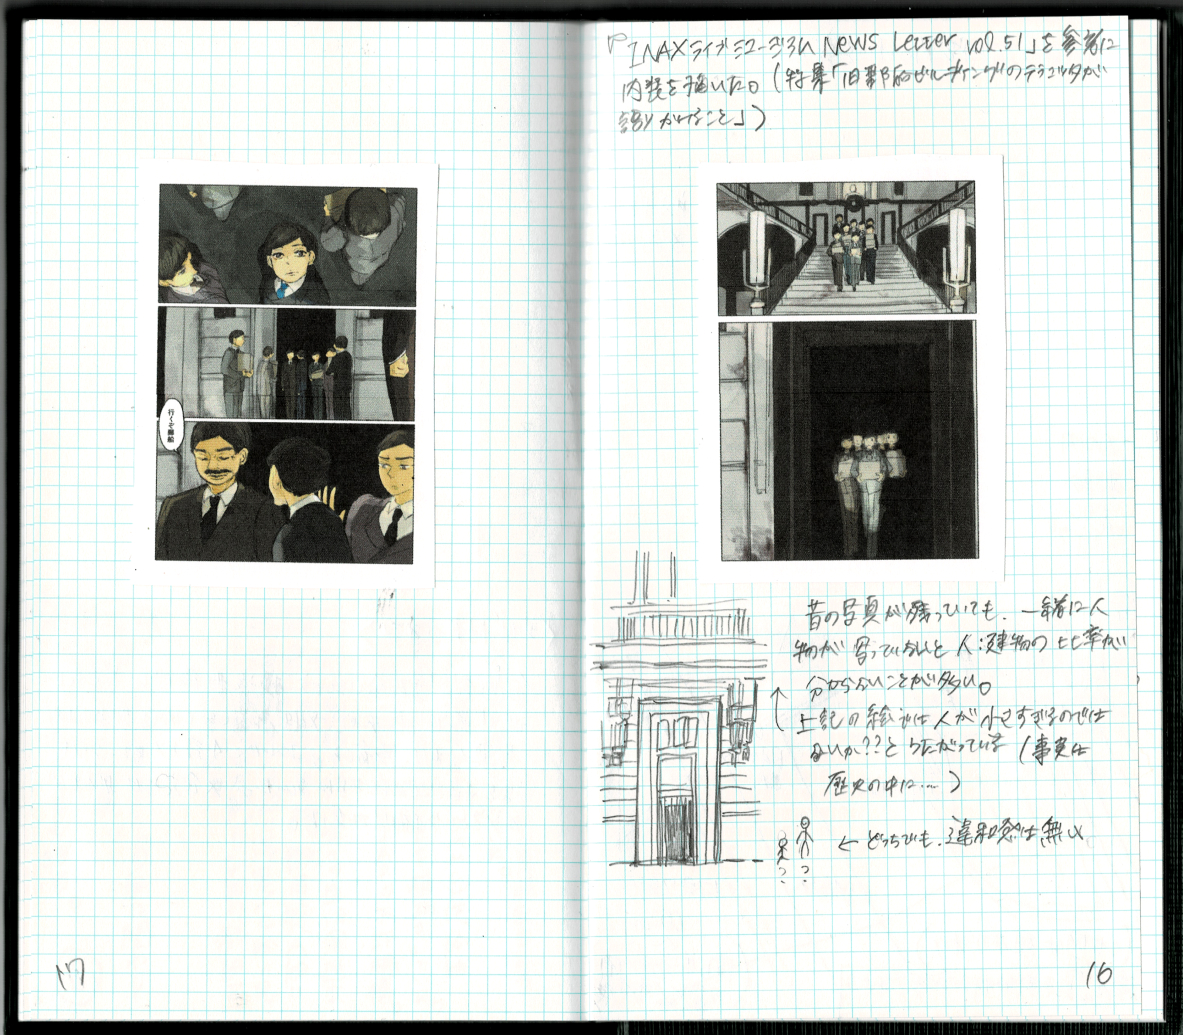 『INAXライブミュージアム NEWS Letter vol.51』を参考に
内装を描いた。(特集「旧郵船ビルディングのテラコッタが
語りかけること」)
昔の写真が残っていても、一緒に人
物が写っていないと人:建物の比率が
分からないことが多い。
上記の絵では人が小さすぎるのでは
ないか??とうたがっている(事実は
歴史の中に…)
? ?
← どっちでも、違和感は無い
16
行くぞ郵船
17